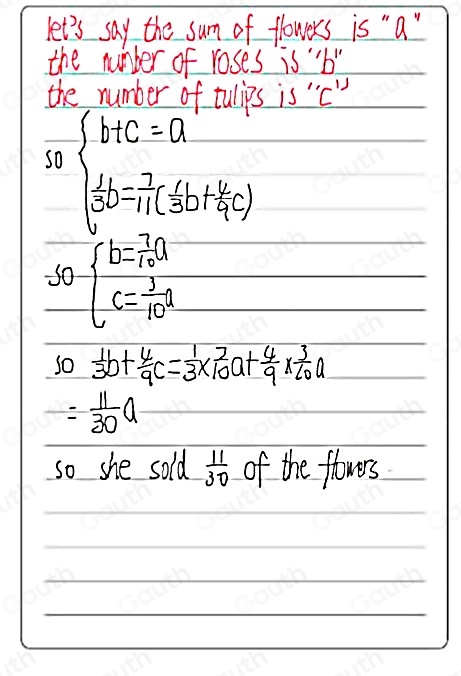 let's say the sum of flowers is "a"
the number of roses is "b"
the number of tulips is "c"
so { b+c = a
1/3 b = 7/11 (1/3 b + 4/9 c)
so { b = 7/10 a
c = 3/10 a
so 1/3 b + 4/9 c = 1/3 × 7/10 a + 4/9 × 3/10 a
= 11/30 a
so she sold 11/30 of the flowers